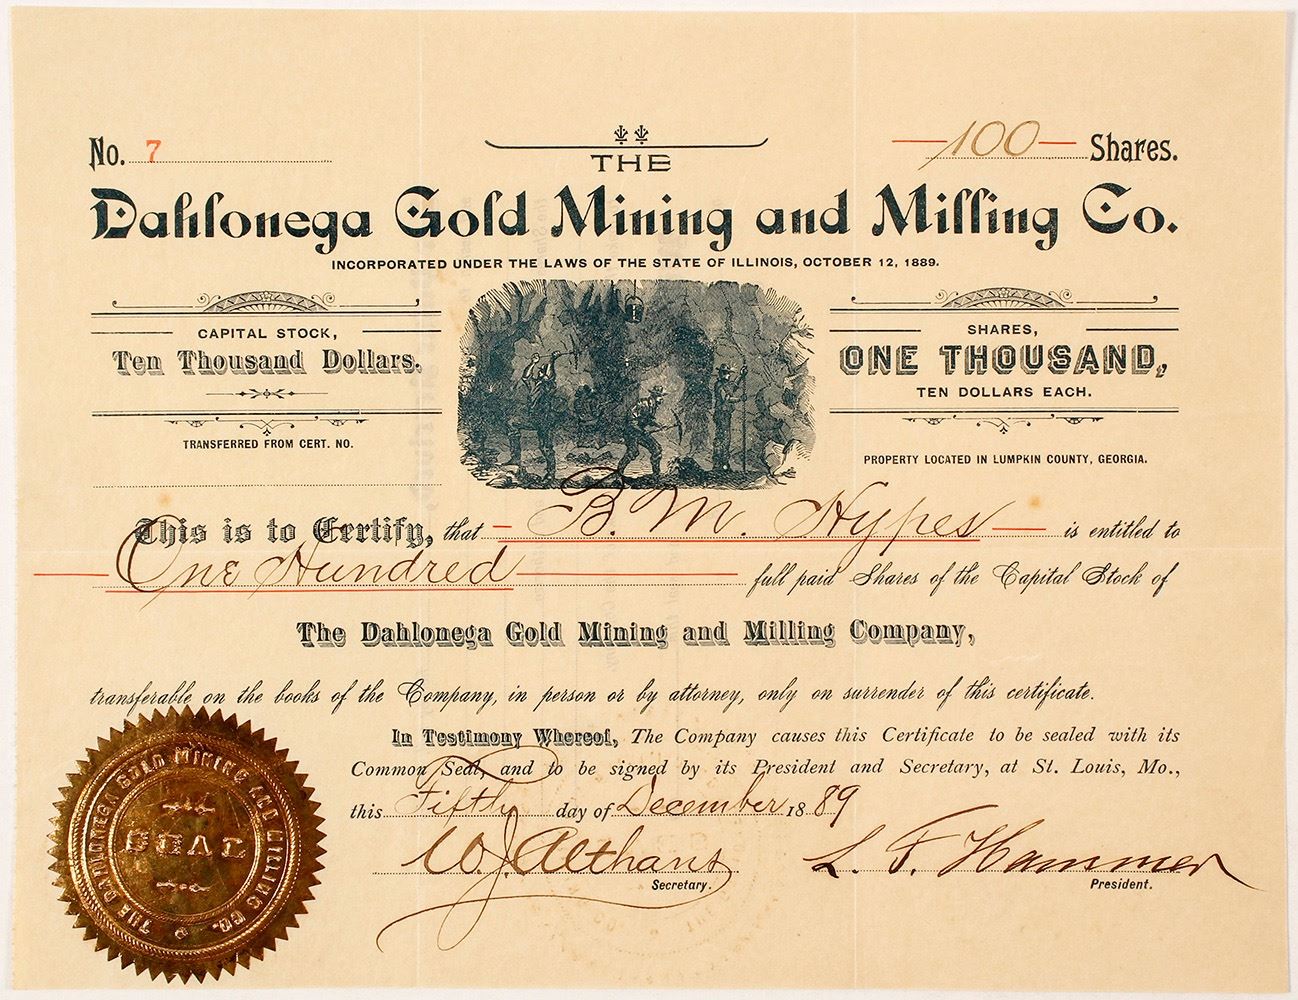 No. 7
—100— Shares.
THE
Dahlonega Gold Mining and Milling Co.
INCORPORATED UNDER THE LAWS OF THE STATE OF ILLINOIS, OCTOBER 12, 1889.
CAPITAL STOCK,
Ten Thousand Dollars.
TRANSFERRED FROM CERT. NO.
SHARES,
ONE THOUSAND,
TEN DOLLARS EACH.
PROPERTY LOCATED IN LUMPKIN COUNTY, GEORGIA.
This is to Certify, that — B. M. Hypes — is entitled to
One Hundred — full paid Shares of the Capital Stock of
The Dahlonega Gold Mining and Milling Company,
transferable on the books of the Company, in person or by attorney, only on surrender of this certificate.
In Testimony Whereof, The Company causes this Certificate to be sealed with its
Common Seal, and to be signed by its President and Secretary, at St. Louis, Mo.,
this Fifth day of December 1889
W. J. Althans Secretary.
L. F. Hammer President.
THE DAHLONEGA GOLD MINING AND MILLING CO.
SEAL